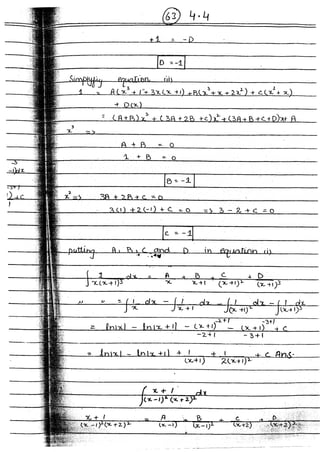 63 4.4
+1 = -D
D = -1
Simplifying equation (i)
1 = A(x³+1+3x(x+1)) + B(x³+x+2x²) + C(x²+x)
+ D(x)
= (A+B)x³ + (3A+2B+C)x² + (3A+B+C+D)x + A
x³ =>
A + B = 0
1 + B = 0
B = -1
x² => 3A + 2B + C = 0
3(1) + 2(-1) + C = 0 => 3 - 2 + C = 0
C = -1
putting A, B, C and D in equation (i)
∫ 1/x(x+1)³ dx = A/x + B/x+1 + C/(x+1)² + D/(x+1)³
" " = ∫ 1/x dx - ∫ 1/x+1 dx - ∫ 1/(x+1)² dx - ∫ 1/(x+1)³ dx
= ln|x| - ln|x+1| - (x+1)⁻²⁺¹/-2+1 - (x+1)⁻³⁺¹/-3+1 + C
= ln|x| - ln|x+1| + 1/(x+1) + 1/2(x+1)² + C Ans.
∫ x+1/(x-1)²(x+2)² dx
x+1/(x-1)²(x+2)² = A/(x-1) + B/(x-1)² + C/(x+2) + D/(x+2)²